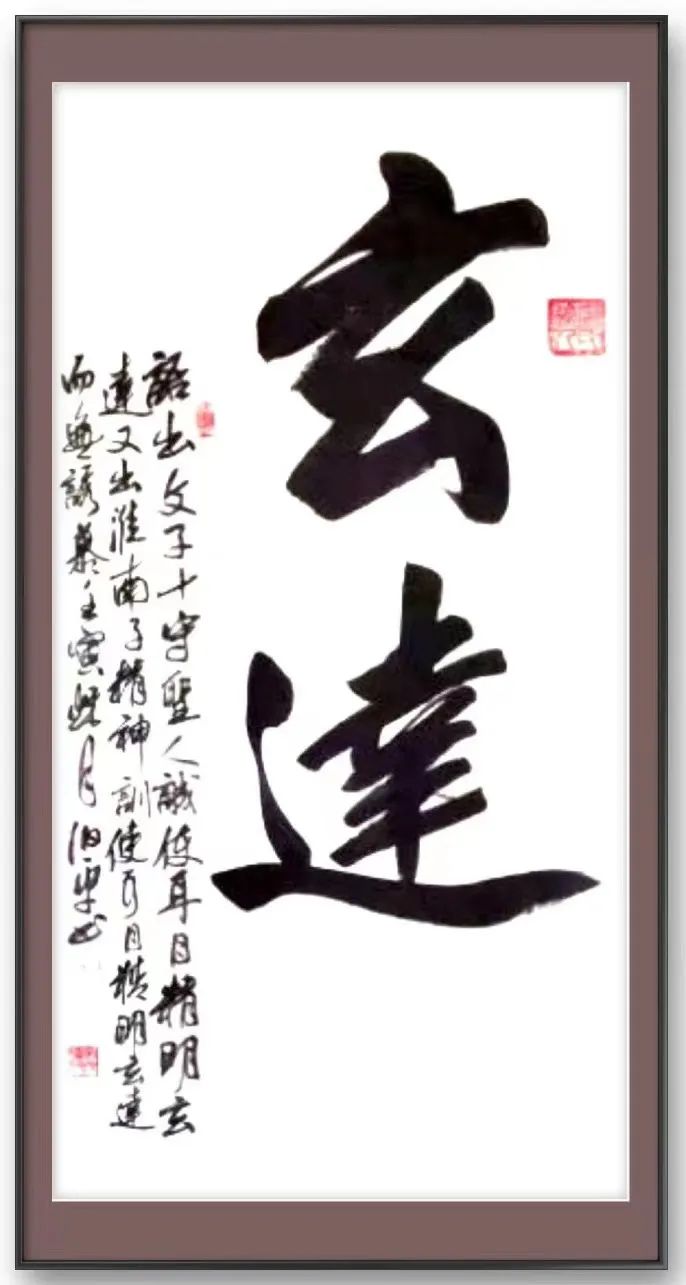 玄達
語出文子十守聖人誠使耳目精明玄
達又出淮南子精神訓使耳目精明玄達
而無誘慕壬寅月